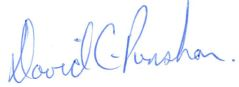 David C. Punshon.